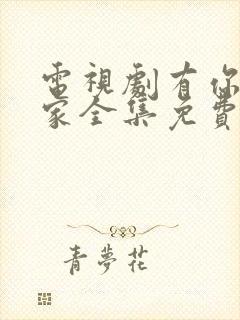 電視劇有你
家全集免費
青夢花